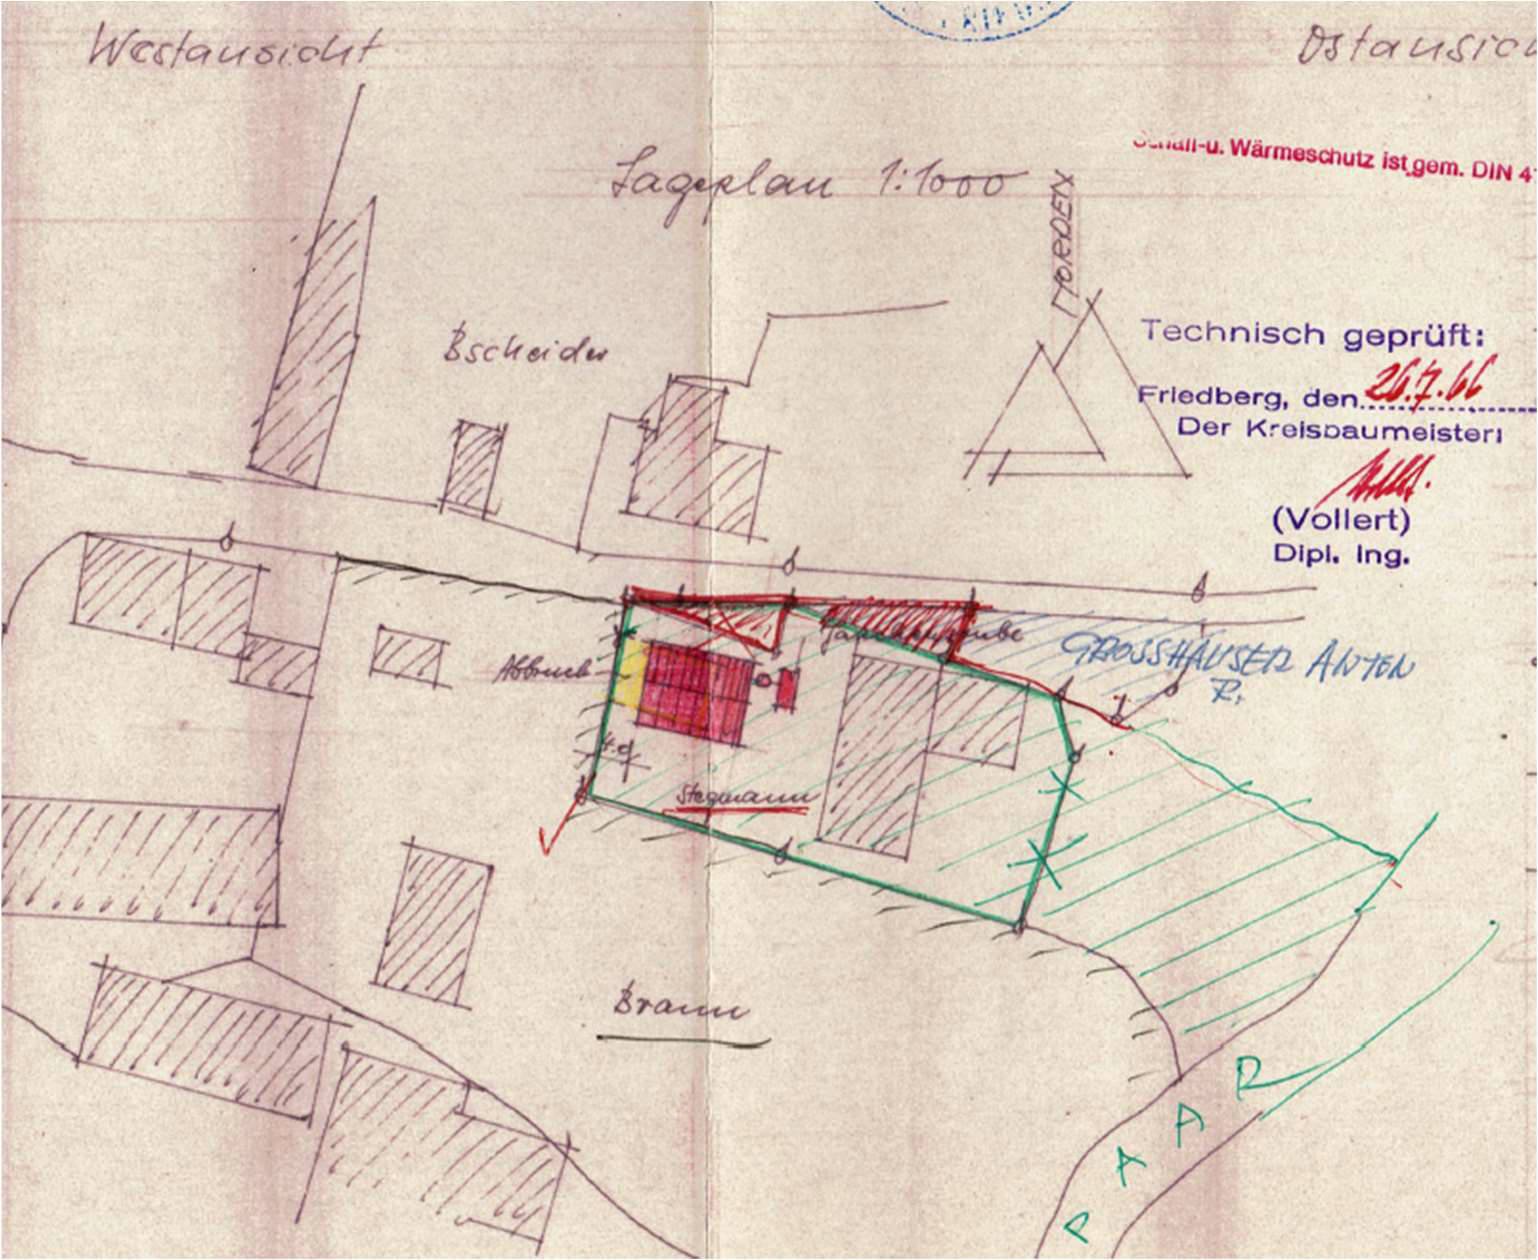 Westansicht
Ostansich
Lageplan 1:1000
-u. Wärmeschutz ist gem. DIN 4
NORDEN
Technisch geprüft:
Friedberg, den 26.7.66
Der Kreisbaumeister:
(Vollert)
Dipl. Ing.
Bscheider
Abbruch
GROSSHAUSER ANTON
4.0
Stegmann
Braun
PAAR